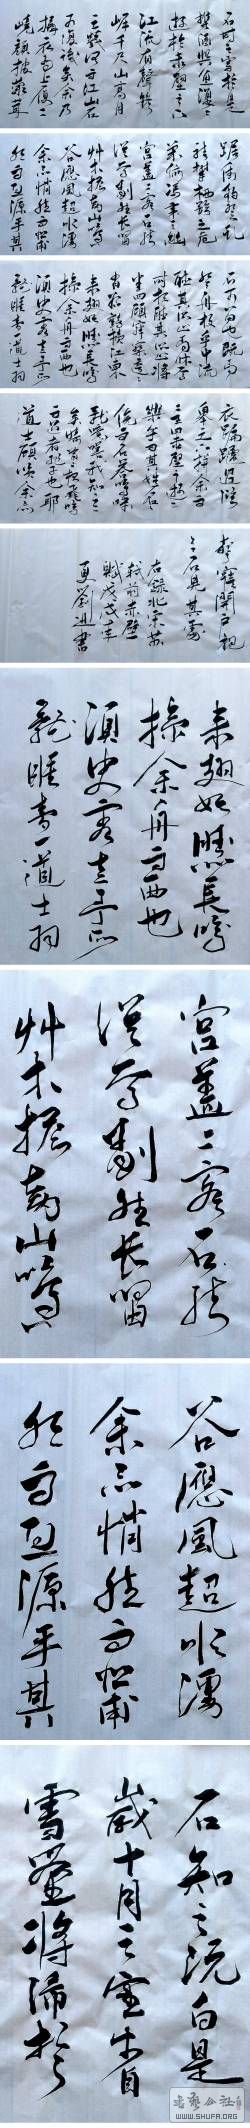 攜酒與魚復遊
於赤壁之下
江流有聲斷
岸千尺山高月
不可復識矣余乃
攝衣而上履
踞虎豹登虬
龍攀栖鶻之危
巢俯馮夷之幽
宮蓋二客不能
從焉劃然長嘯
艸木震動山鳴
谷應風起水湧
余亦悄然而悲肅
然而恐凜乎其
不可留也
登舟放乎中流
聽其所止而休焉
四顧寂寥適有
孤鶴橫江東
來翅如 長鳴
掠余舟而西也
須臾客去予亦
就睡夢一道士羽
衣蹁躚過臨
皋之下揖余而
曰赤壁之遊
樂乎問其姓名
俛而不答嗚呼
噫嘻我知之
矣疇昔之夜
道士顧笑余亦
驚寤開戶視
之不見其處
右錄北宋蘇
軾前赤壁
賦戊戌年
來翅如 長鳴
掠余舟而西也
須臾客去予亦
就睡夢一道士羽
宮蓋二客不能
從焉劃然長嘯
艸木震動山鳴
谷應風起水湧
余亦悄然而悲肅
然而恐凜乎其
是
歲十月之望步自
雪堂將歸於
WWW.SHUFA.ORG